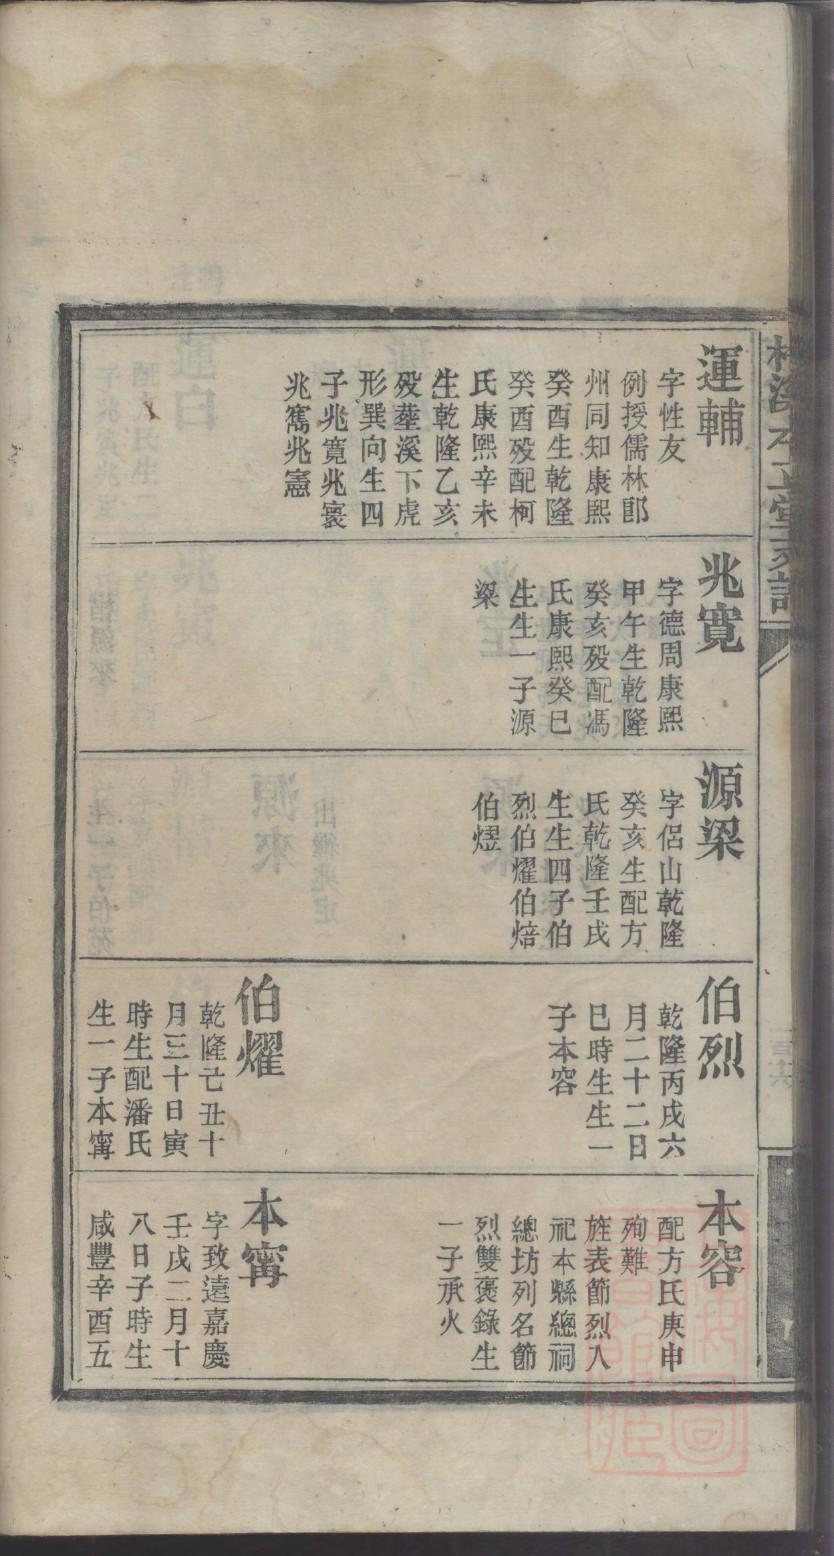 運輔
字性友
例授儒林郎
州同知康熙
癸酉生乾隆
癸酉歿配柯
氏康熙辛未
生乾隆乙亥
歿塟溪下虎
形巽向生四
子兆寬兆寰
兆寯兆憲
兆寬
字德周康熙
甲午生乾隆
癸亥歿配馮
氏康熙癸巳
生生一子源
梁
源梁
字侶山乾隆
癸亥生配方
氏乾隆壬戌
生生四子伯
烈伯燿伯焙
伯熤
伯烈
乾隆丙戌六
月二十二日
巳時生生一
子本容
伯燿
乾隆己丑十
月三十日寅
時生配潘氏
生一子本寗
本容
配方氏庚申
殉難
旌表節烈入
祀本縣總祠
總坊列名節
烈雙褒錄生
一子承火
本寗
字致遠嘉慶
壬戌二月十
八日子時生
咸豐辛酉五